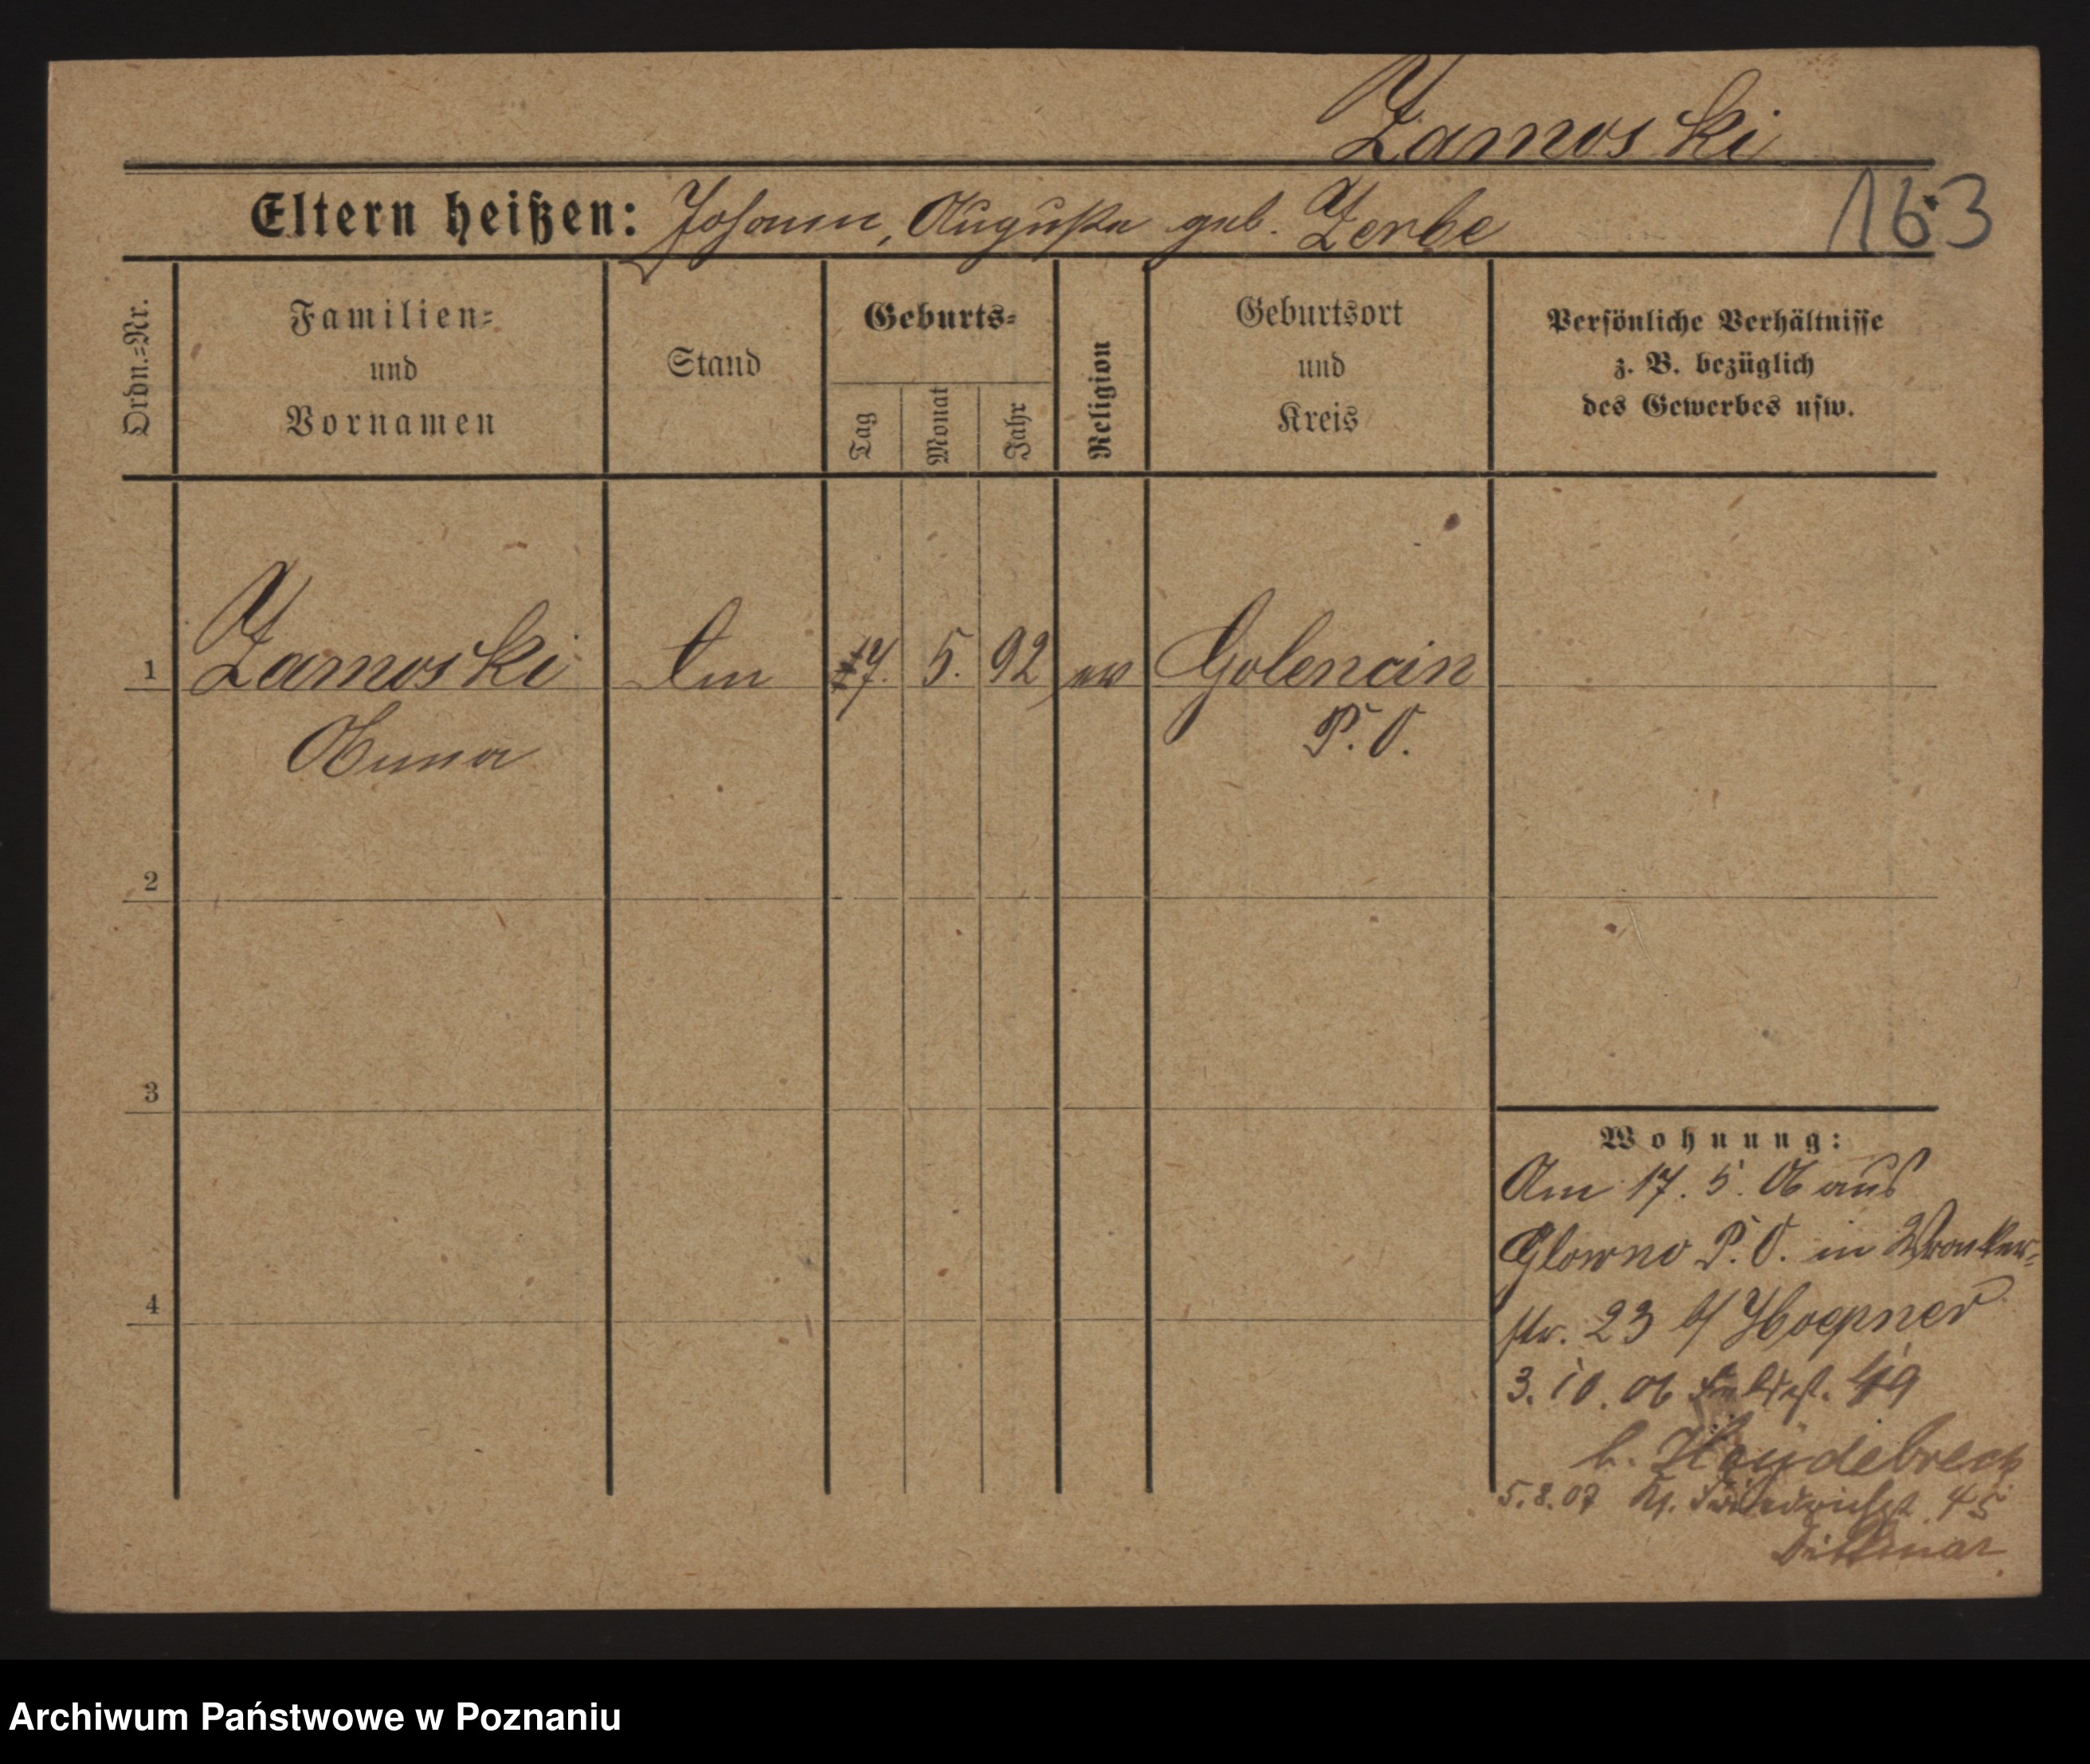 Zamoski
Eltern heißen: Johann, Auguste geb. Zerbe
163
Ordn.=Nr.
Familien=
und
Vornamen
Stand
Geburts=
Tag
Monat
Jahr
Religion
Geburtsort
und
Kreis
Persönliche Verhältnisse
z. B. bezüglich
des Gewerbes usw.
1 Zamoski 17. 5. 92 ev Golencin
Anna P. O.
2
3
4
Wohnung:
Am 17. 5. 06 aus
Glowno P. O. in Wronker=
str. 23 b/ Hoepner
3. 10. 06 49
b. Heydebreck
5.8.07 Kl. 45
Dittmar
Archiwum Państwowe w Poznaniu